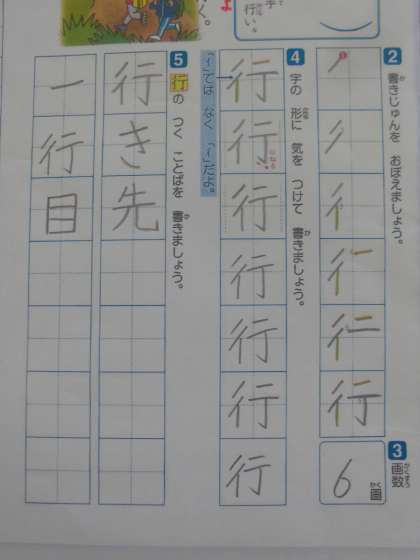 2 書きじゅんを おぼえましょう。
3 画数
6画
4 字の 形に 気を つけて 書きましょう。
行
行
行
行
行
行
行
「イ」では なく 「彳」だよ。
5 行の つく ことばを 書きましょう。
行き先
一行目